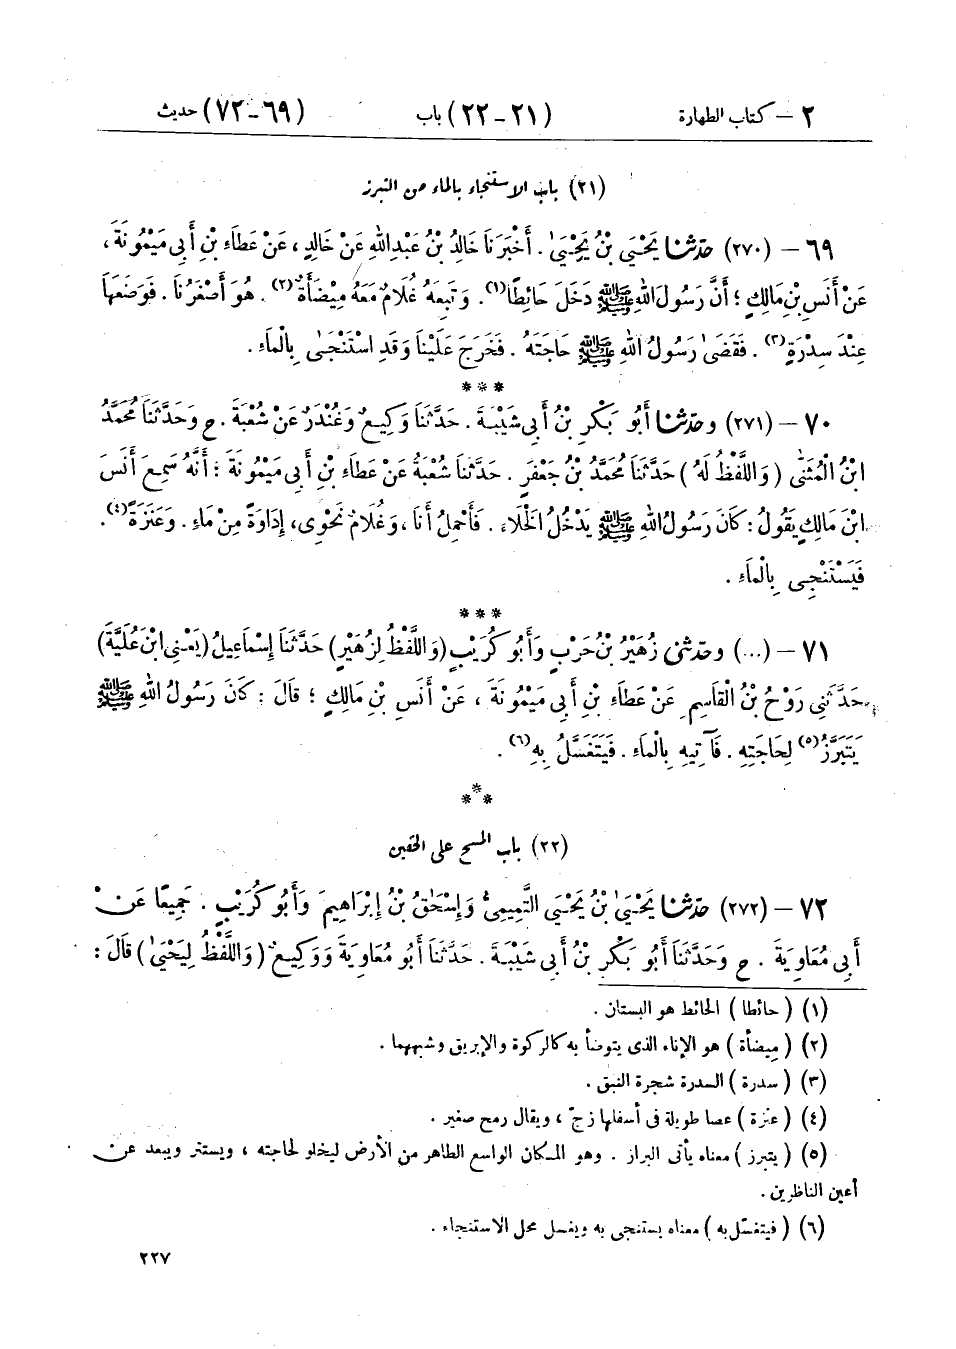 ٢ – كتاب الطهارة (٢١-٢٢) باب (٦٩-٧٢) حديث
(٢١) باب الاستنجاء بالماء من التبرز
٦٩ – (٢٧٠) حدثنا يَحْيَىٰ بْنُ يَحْيَىٰ. أَخْبَرَنَا خَالِدُ بْنُ عَبْدِ اللهِ عَنْ خَالِدٍ، عَنْ عَطَاءِ بْنِ أَبِي مَيْمُونَةَ،
عَنْ أَنَسِ بْنِ مَالِكٍ؛ أَنَّ رَسُولَ اللهِ ﷺ دَخَلَ حَائِطًا(١). وَتَبِعَهُ غُلَامٌ مَعَهُ مِيضَأَةٌ(٢). هُوَ أَصْغَرُنَا. فَوَضَعَهَا
عِنْدَ سِدْرَةٍ(٣). فَقَضَىٰ رَسُولُ اللهِ ﷺ حَاجَتَهُ. فَخَرَجَ عَلَيْنَا وَقَدِ اسْتَنْجَىٰ بِالْمَاءِ.
***
٧٠ – (٢٧١) وحدثنا أَبُو بَكْرِ بْنُ أَبِي شَيْبَةَ. حَدَّثَنَا وَكِيعٌ وَغُنْدَرٌ عَنْ شُعْبَةَ. ح وَحَدَّثَنَا مُحَمَّدُ
ابْنُ الْمُثَنَّىٰ (وَاللَّفْظُ لَهُ) حَدَّثَنَا مُحَمَّدُ بْنُ جَعْفَرٍ. حَدَّثَنَا شُعْبَةُ عَنْ عَطَاءِ بْنِ أَبِي مَيْمُونَةَ؛ أَنَّهُ سَمِعَ أَنَسَ
ابْنَ مَالِكٍ يَقُولُ: كَانَ رَسُولُ اللهِ ﷺ يَدْخُلُ الْخَلَاءَ. فَأَحْمِلُ أَنَا، وَغُلَامٌ نَحْوِي، إِدَاوَةً مِنْ مَاءٍ. وَعَنَزَةً(٤).
فَيَسْتَنْجِي بِالْمَاءِ.
***
٧١ – (...) وحدثني زُهَيْرُ بْنُ حَرْبٍ وَأَبُو كُرَيْبٍ (وَاللَّفْظُ لِزُهَيْرٍ) حَدَّثَنَا إِسْمَاعِيلُ (يَعْنِي ابْنَ عُلَيَّةَ)
حَدَّثَنِي رَوْحُ بْنُ الْقَاسِمِ عَنْ عَطَاءِ بْنِ أَبِي مَيْمُونَةَ، عَنْ أَنَسِ بْنِ مَالِكٍ؛ قَالَ: كَانَ رَسُولُ اللهِ ﷺ
يَتَبَرَّزُ(٥) لِحَاجَتِهِ. فَآتِيهِ بِالْمَاءِ. فَيَتَغَسَّلُ بِهِ(٦).
***
(٢٢) باب المسح على الخفين
٧٢ – (٢٧٢) حدثنا يَحْيَىٰ بْنُ يَحْيَى التَّمِيمِيُّ وَإِسْحَٰقُ بْنُ إِبْرَاهِيمَ وَأَبُو كُرَيْبٍ. جَمِيعًا عَنْ
أَبِي مُعَاوِيَةَ. ح وَحَدَّثَنَا أَبُو بَكْرِ بْنُ أَبِي شَيْبَةَ. حَدَّثَنَا أَبُو مُعَاوِيَةَ وَوَكِيعٌ (وَاللَّفْظُ لِيَحْيَىٰ) قَالَ:
(١) (حائطا) الحائط هو البستان.
(٢) (ميضأة) هو الإناء الذى يتوضأ به كالركوة والإبريق وشبههما.
(٣) (سدرة) السدرة شجرة النبق.
(٤) (عنزة) عصا طويلة فى أسفلها زجّ، ويقال رمح صغير.
(٥) (يتبرز) معناه يأتى البراز. وهو المكان الواسع الظاهر من الأرض ليخلو لحاجته، ويستتر ويبعد عن
أعين الناظرين.
(٦) (فيتغسّل به) معناه يستنجى به ويغسل محل الاستنجاء.
٢٢٧